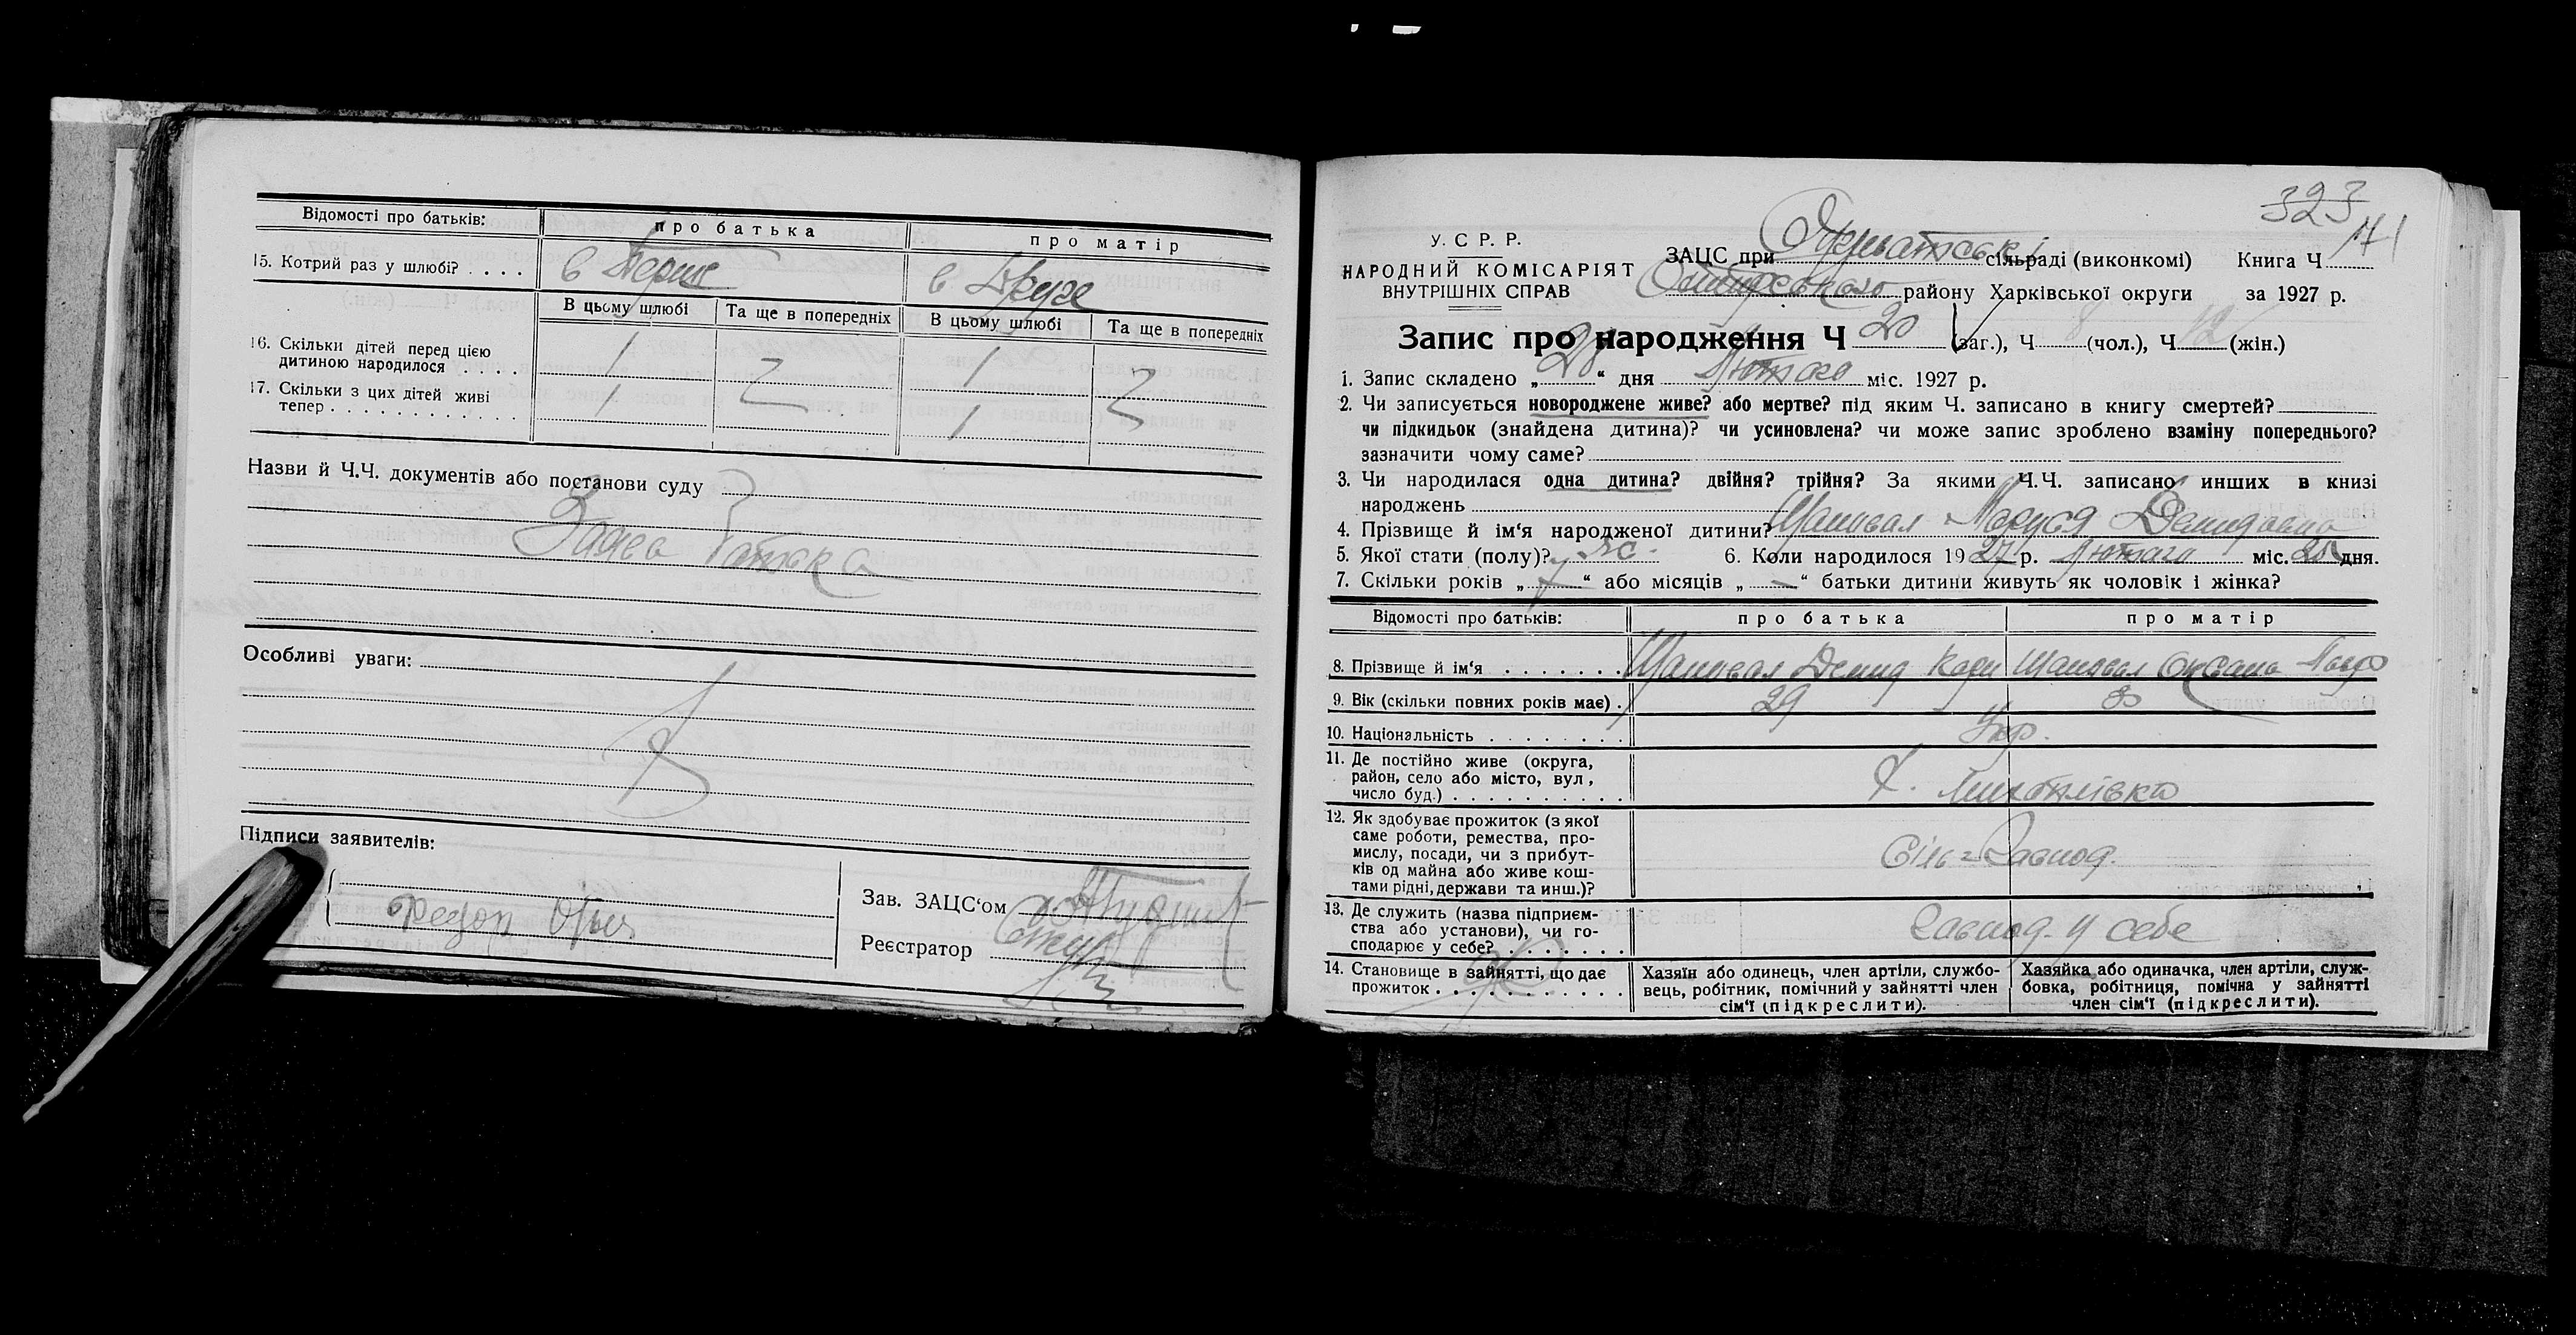 Відомості про батьків: про батька про матір
15. Котрий раз у шлюбі? . . . . в перше в друге
В цьому шлюбі Та ще в попередніх В цьому шлюбі Та ще в попередніх
16. Скільки дітей перед цією
дитиною народилося . . . . 1 1
17. Скільки з цих дітей живі
тепер . . . . . . . . . . . . 1 1
Назви й Ч.Ч. документів або постанови суду
Заява Батька
Особливі уваги:
Підписи заявителів:
Зав. ЗАЦС‘ом
Реєстратор
323
У. С. Р. Р.
НАРОДНИЙ КОМІСАРІЯТ
ВНУТРІШНІХ СПРАВ
ЗАЦС при сільраді (виконкомі) Книга Ч
району Харківської округи за 1927 р.
Запис про народження Ч 20 (заг.), Ч 8 (чол.), Ч 12 (жін.)
1. Запис складено „ 28 “ дня Лютого міс. 1927 р.
2. Чи записується новороджене живе? або мертве? під яким Ч. записано в книгу смертей?
чи підкидьок (знайдена дитина)? чи усиновлена? чи може запис зроблено взаміну попереднього?
зазначити чому саме?
3. Чи народилася одна дитина? двійня? трійня? За якими Ч.Ч. записано инших в книзі
народжень
4. Прізвище й ім‘я народженої дитини? Шаповал Маруся Демидовна
5. Якої стати (полу)? ж. 6. Коли народилося 1927 р. Лютого міс. дня.
7. Скільки років „ “ або місяців „ – “ батьки дитини живуть як чоловік і жінка?
Відомості про батьків: про батька про матір
8. Прізвище й ім‘я . . . . . . . Шаповал Демид Шаповал Оксана
9. Вік (скільки повних років має) . 29 30
10. Національність . . . . . . . . Укр.
11. Де постійно живе (округа,
район, село або місто, вул,
число буд.) . . . . . . . . . . . Х.
12. Як здобуває прожиток (з якої
саме роботи, ремества, про-
мислу, посади, чи з прибут-
ків од майна або живе кош-
тами рідні, держави та инш.)?
13. Де служить (назва підприєм-
ства або установи), чи го-
сподарює у себе? . . . . . . . . у себе
14. Становище в зайнятті, що дає
прожиток . . . . . . . . . . . .
Хазяїн або одинець, член артіли, службо-
вець, робітник, помічний у зайнятті член
сім‘ї (підкреслити).
Хазяйка або одиначка, член артіли, служ-
бовка, робітниця, помічна у зайнятті
член сім‘ї (підкреслити).